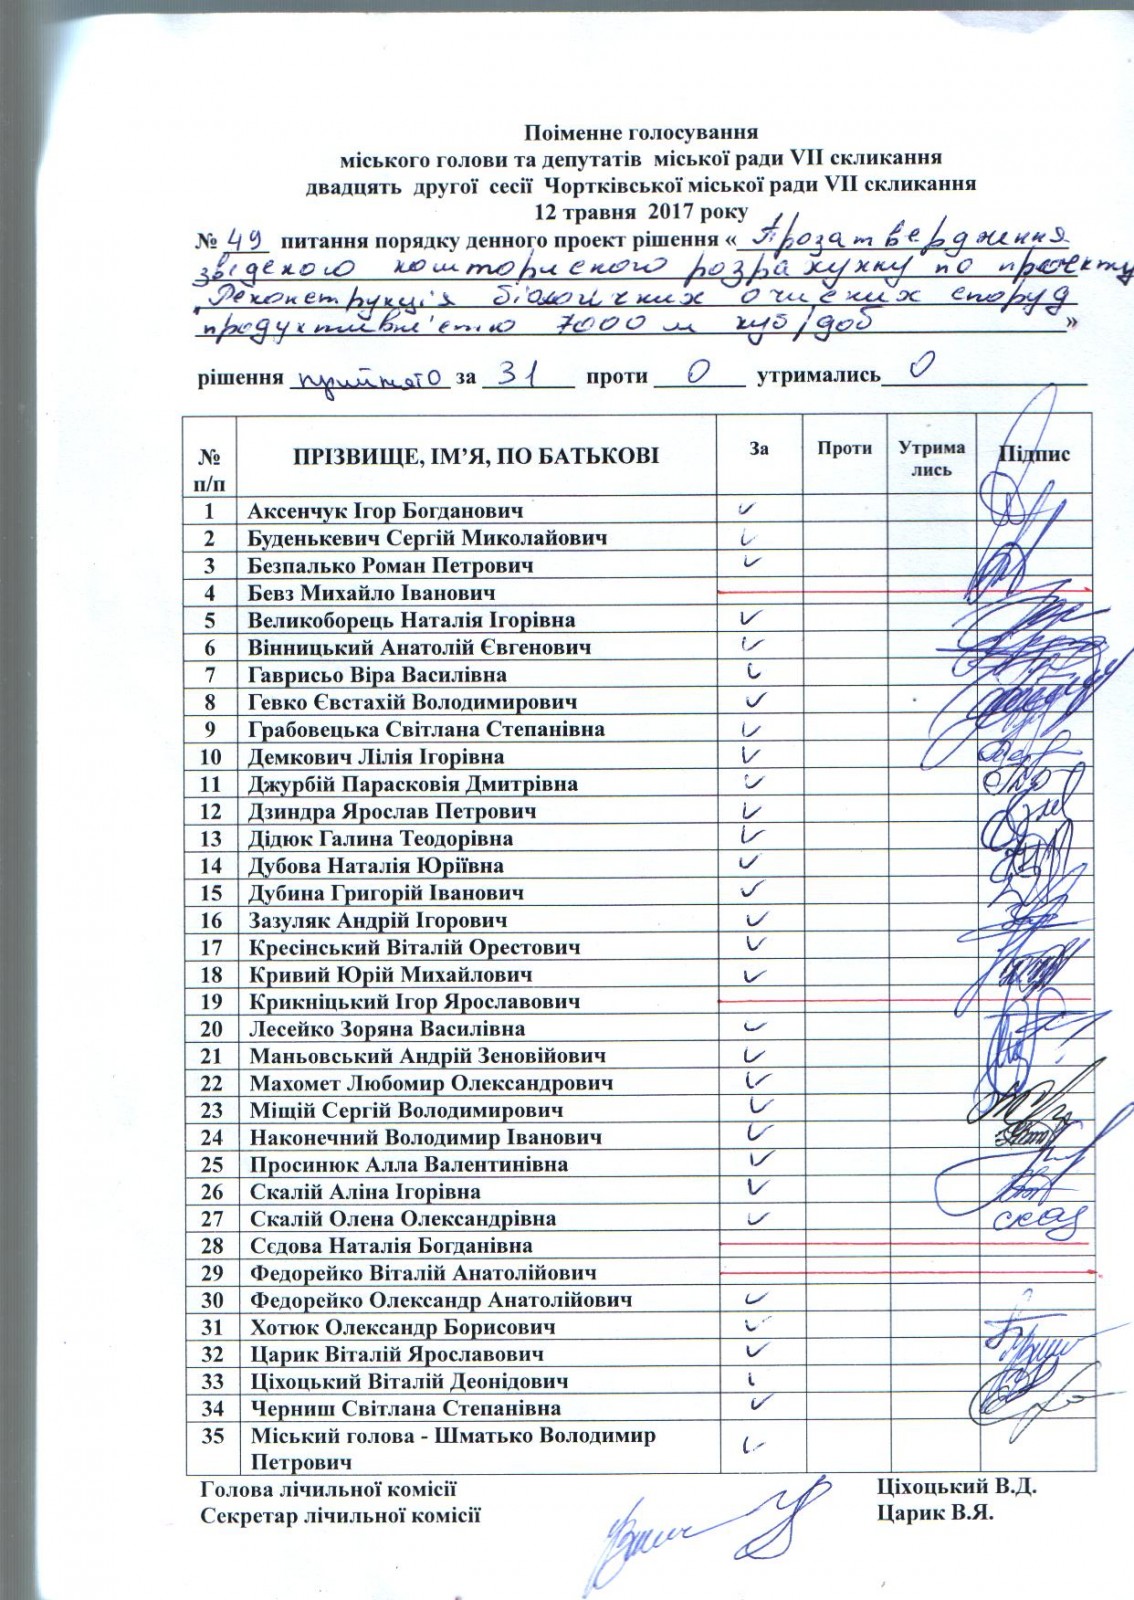 Поіменне голосування
міського голови та депутатів міської ради VII скликання
двадцять другої сесії Чортківської міської ради VII скликання
12 травня 2017 року
№ 49 питання порядку денного проект рішення « Про затвердження
зведеного кошторисного розрахунку по проекту
"Реконструкція біологічних очисних споруд
продуктивністю 7000 м куб/доб »
рішення прийнято за 31 проти 0 утримались 0
№ п/п ПРІЗВИЩЕ, ІМ’Я, ПО БАТЬКОВІ За Проти Утрима лись Підпис
1 Аксенчук Ігор Богданович ✓
2 Буденькевич Сергій Миколайович ✓
3 Безпалько Роман Петрович ✓
4 Бевз Михайло Іванович
5 Великоборець Наталія Ігорівна ✓
6 Вінницький Анатолій Євгенович ✓
7 Гаврисьо Віра Василівна ✓
8 Гевко Євстахій Володимирович ✓
9 Грабовецька Світлана Степанівна ✓
10 Демкович Лілія Ігорівна ✓
11 Джурбій Парасковія Дмитрівна ✓
12 Дзиндра Ярослав Петрович ✓
13 Дідюк Галина Теодорівна ✓
14 Дубова Наталія Юріївна ✓
15 Дубина Григорій Іванович ✓
16 Зазуляк Андрій Ігорович ✓
17 Кресінський Віталій Орестович ✓
18 Кривий Юрій Михайлович ✓
19 Крикніцький Ігор Ярославович
20 Лесейко Зоряна Василівна ✓
21 Маньовський Андрій Зеновійович ✓
22 Махомет Любомир Олександрович ✓
23 Міщій Сергій Володимирович ✓
24 Наконечний Володимир Іванович ✓
25 Просинюк Алла Валентинівна ✓
26 Скалій Аліна Ігорівна ✓
27 Скалій Олена Олександрівна ✓
28 Сєдова Наталія Богданівна
29 Федорейко Віталій Анатолійович
30 Федорейко Олександр Анатолійович ✓
31 Хотюк Олександр Борисович ✓
32 Царик Віталій Ярославович ✓
33 Ціхоцький Віталій Деонідович ✓
34 Черниш Світлана Степанівна ✓
35 Міський голова - Шматько Володимир ✓
Петрович
Голова лічильної комісії Ціхоцький В.Д.
Секретар лічильної комісії Царик В.Я.